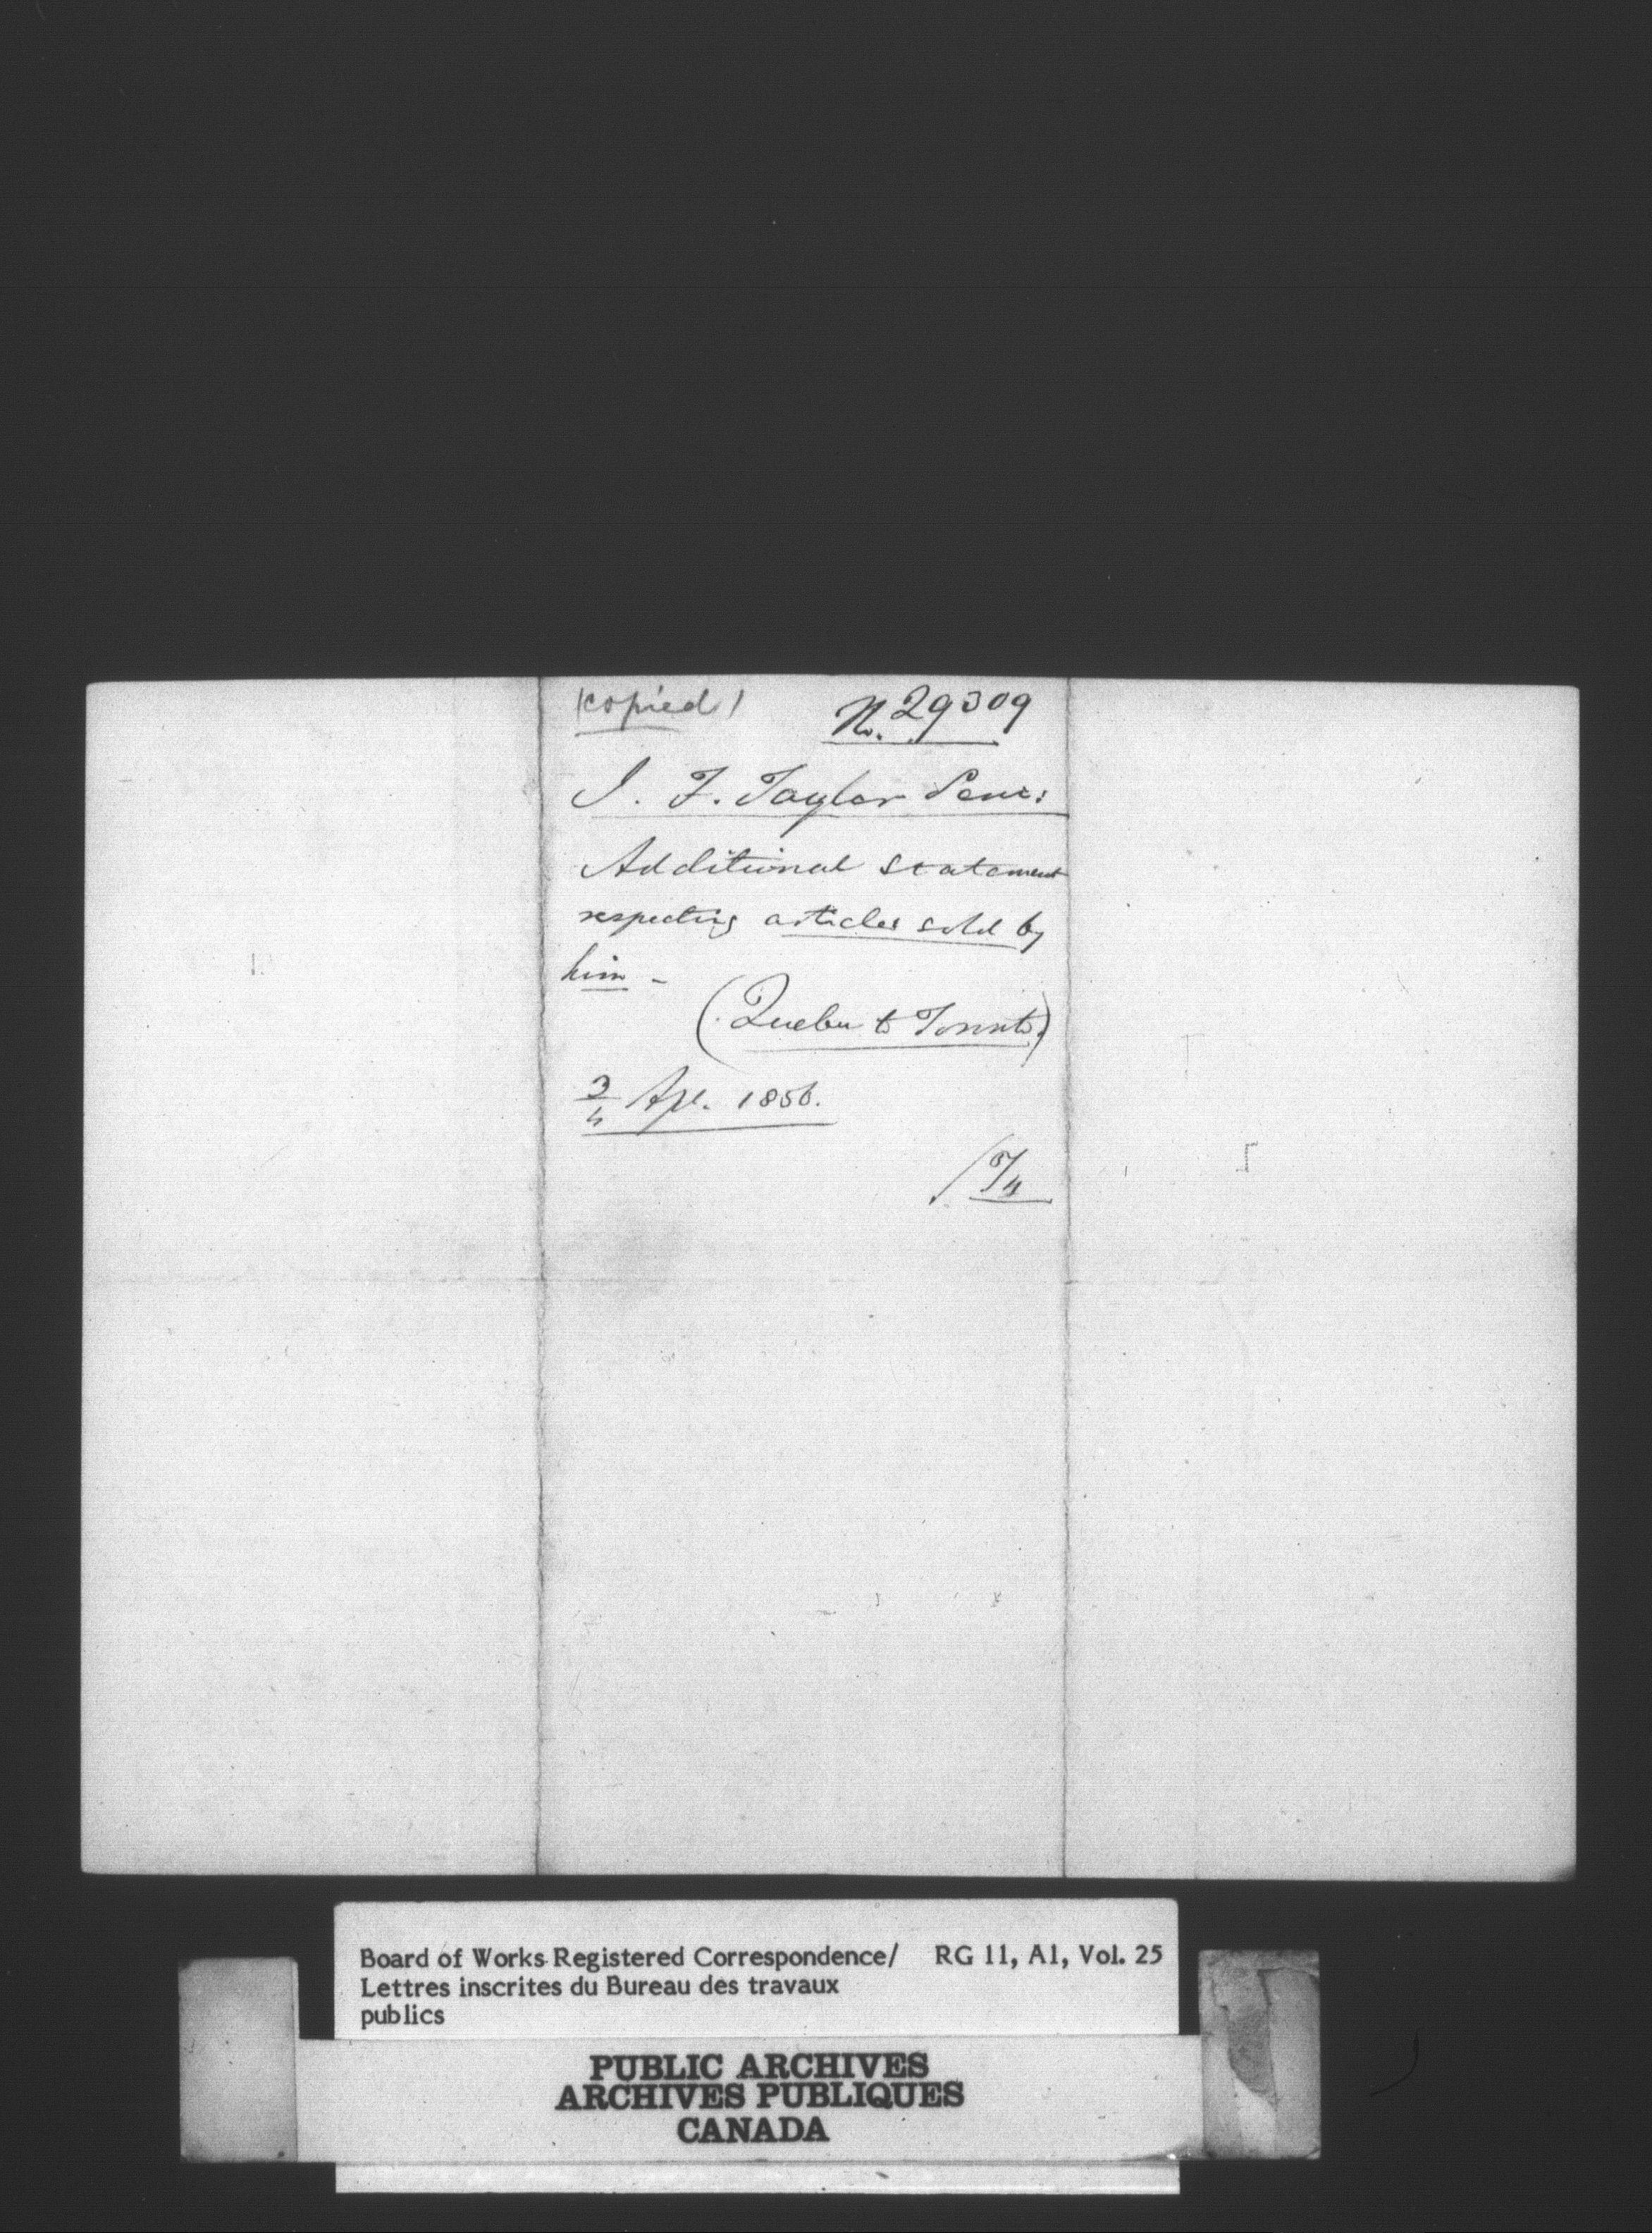 /copied/
No. 29309
J. F. Taylor Senr:
Additional statement
respecting articles sold by
him -
(Quebec to Toronto)
3/4 Apl. 1856.
/ 5/4
Board of Works Registered Correspondence/ RG 11, A1, Vol. 25
Lettres inscrites du Bureau des travaux
publics
PUBLIC ARCHIVES
ARCHIVES PUBLIQUES
CANADA